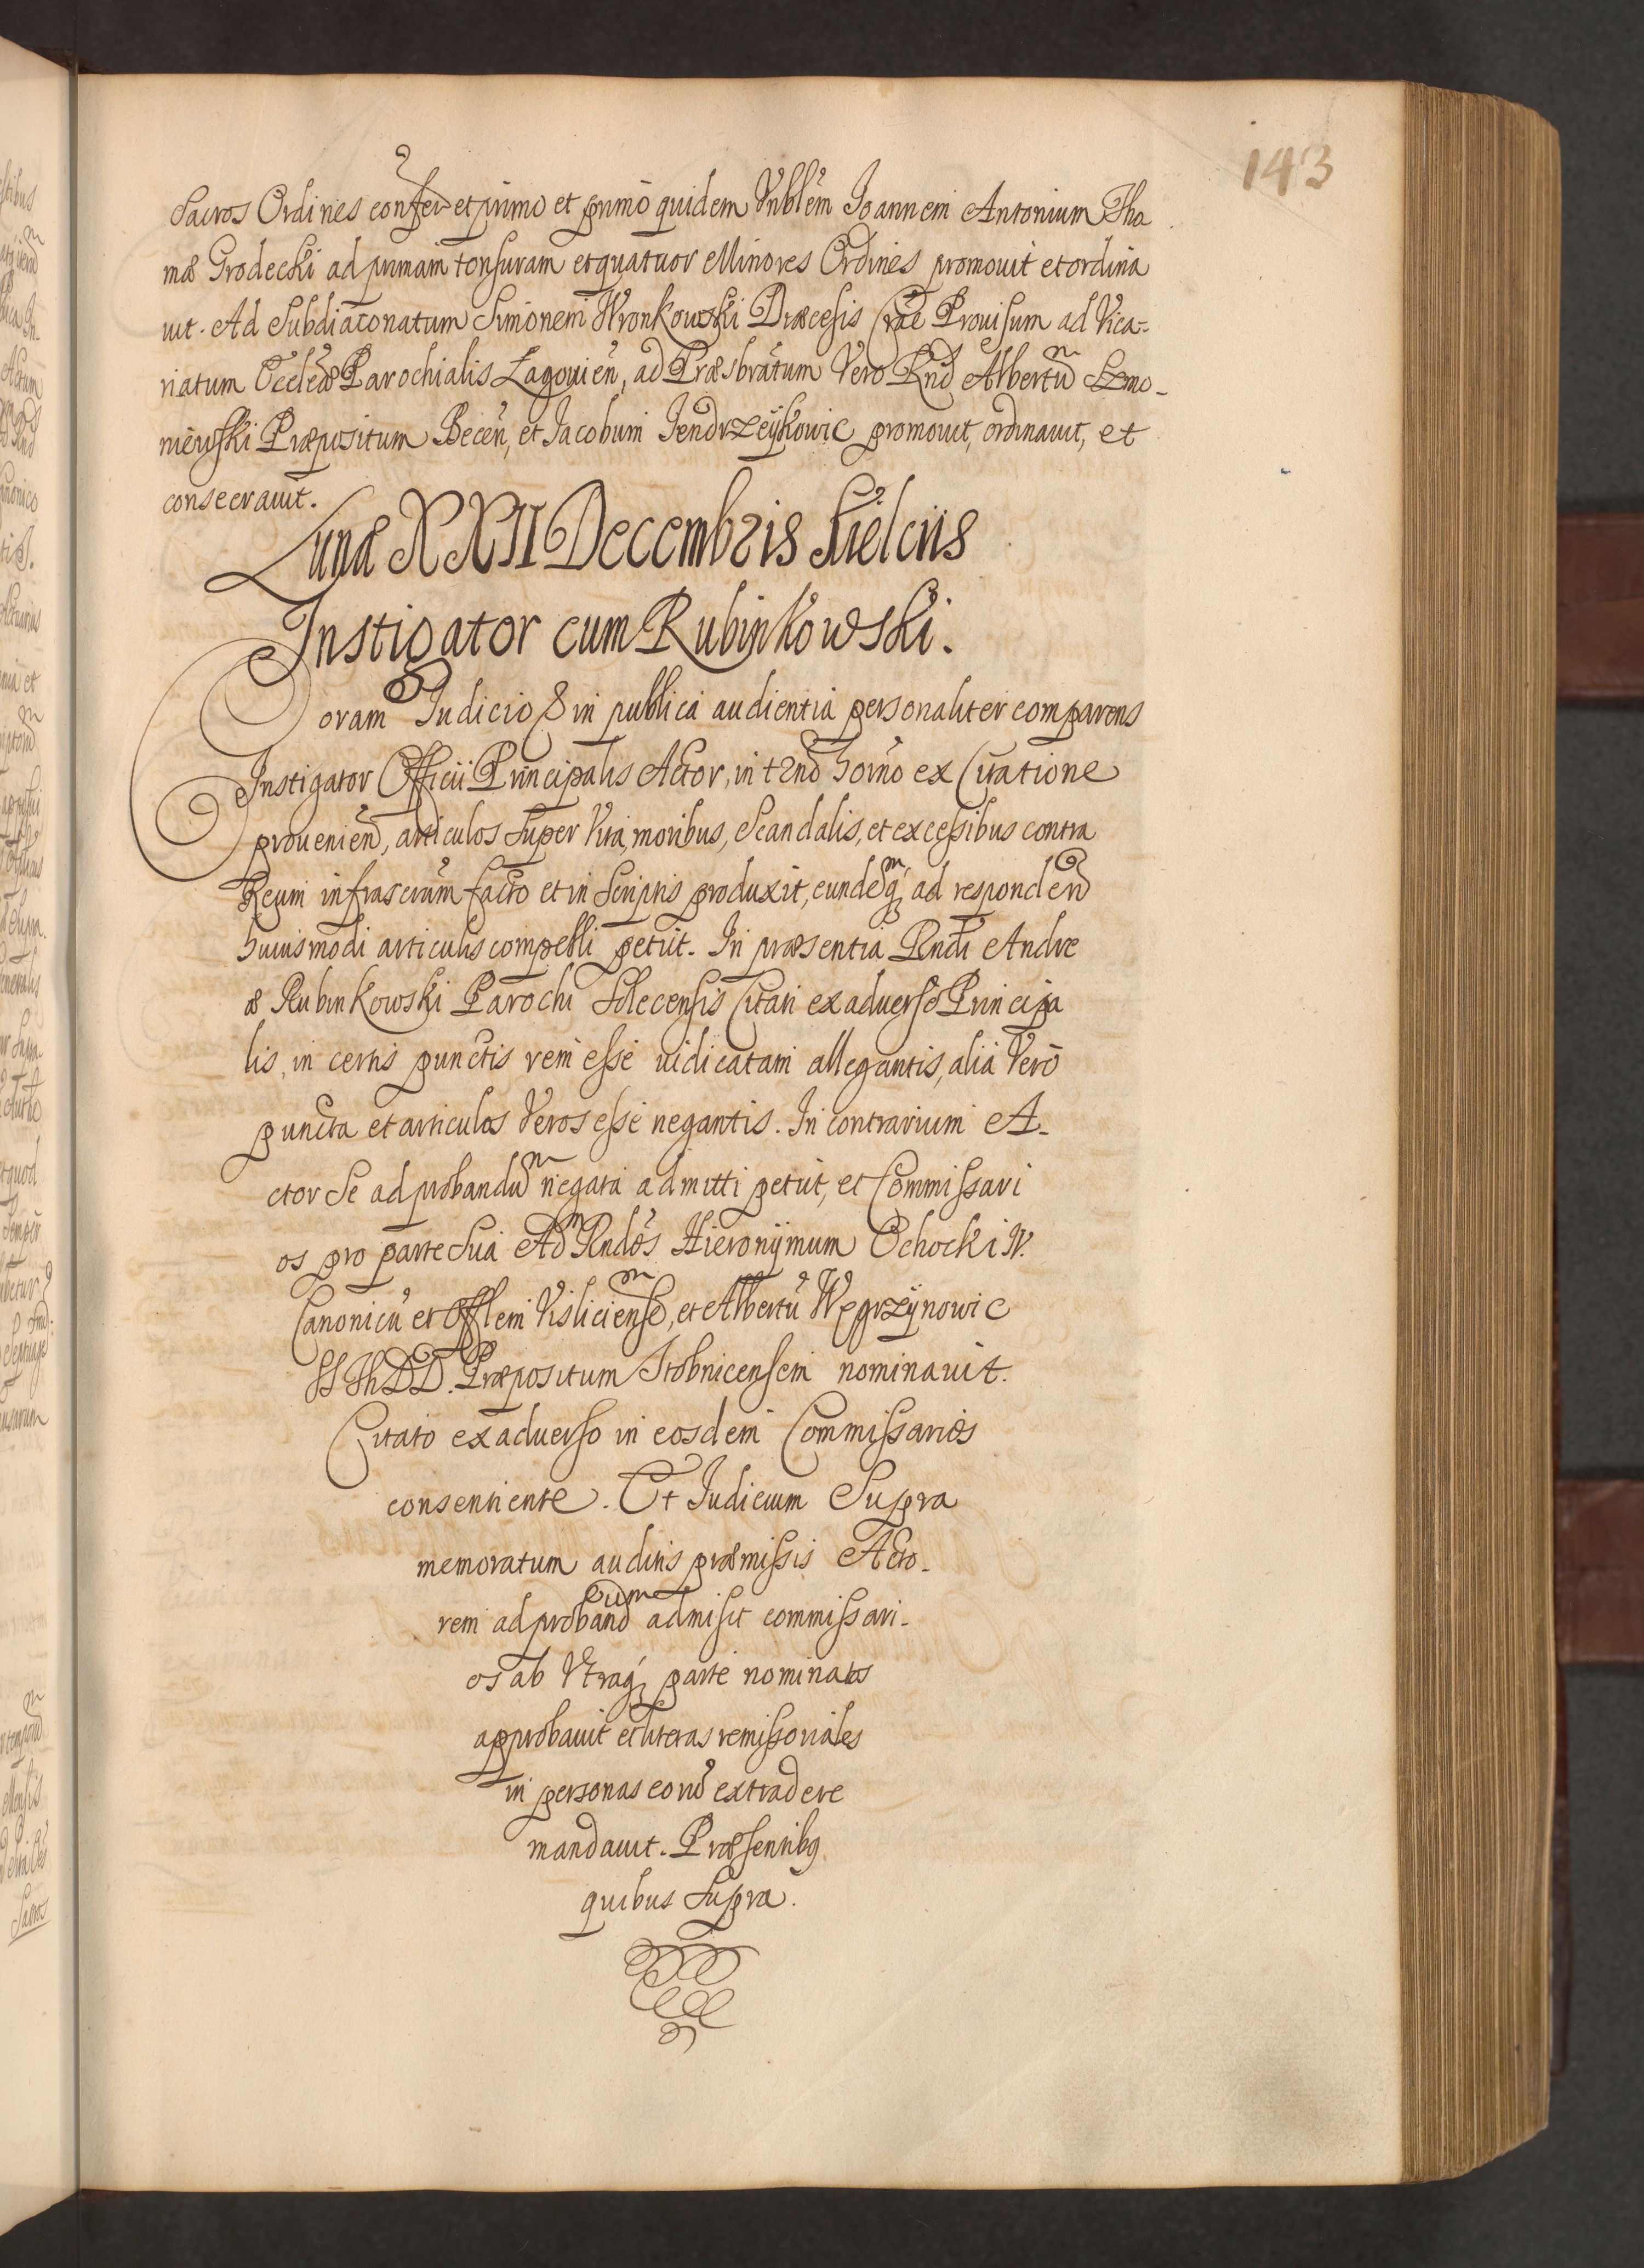 143
Sacros Ordines confer et primo et primo quidem Vnblem Ioannem Antonium Tho
mæ Grodecki ad primam tonsuram et quatuor Minores Ordines promouit et ordina
uit. Ad Subdiaconatum Simonem Wronkowski Diæcesis Crac Prouisum ad Vica-
riatum Ecclēæ Parochialis Lagouien, ad Præsbratum Vero Rnd Albertū Szmo-
niewski Præpositum Becen, et Iacobum Jendrzeÿkowic promouit, ordinauit, et
consecrauit.
Lunæ XXII Decembris Kielciis
Instigator cum Rubinkowski.
Coram Iudicio & in publica audientia personaliter comparens
Instigator Officii Principalis Actor, in t2no horno ex Citatione
prouenien, articulos Super Vita, moribus, Scandalis, et excessibus contra
Reum infrascrūm facto et in Scriptis produxit, eundēq, ad respondēn
huiusmodi articulis compelli petiit. In præsentia Rndi Andre
æ Rubinkowski Parochi Solecensis Citati ex aduerso Principa
lis, in certis punctis rem esse iudicatam allegantis, alia Vero
puncta et articulos Veros esse negantis. In contrarium A-
ctor Se ad probandū negata admitti petiit, et Commissari
os pro parte Sua Ad Rndōs Hieronÿmum Ochocki W.
Canonicū et Offlem Visliciensē, et Albertū Węgrzÿnowic
SS Th DD. Præpositum Stobnicensem nominauit.
Citato ex aduerso in eosdem Commissarios
consentiente. Et Iudicium Supra
memoratum auditis præmissis Acto-
rem ad proband eum admisit commissari-
os ab Vtraq, parte nominatos
approbauit et literas remissoriales
in personas eorū extradere
mandauit. Præsentibq
quibus Supra.